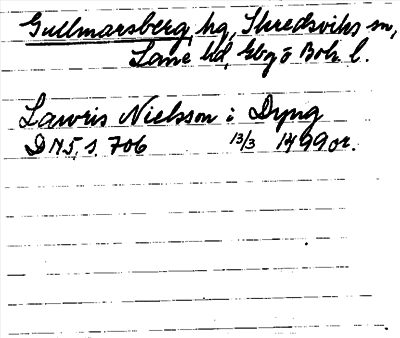 Gullmarsberg, hg, Skredsviks sn,
Lane hd, Gbg o Boh. l.
Lawris Nielsson i Dyng
DN5, s. 706 13/3 1499 or.